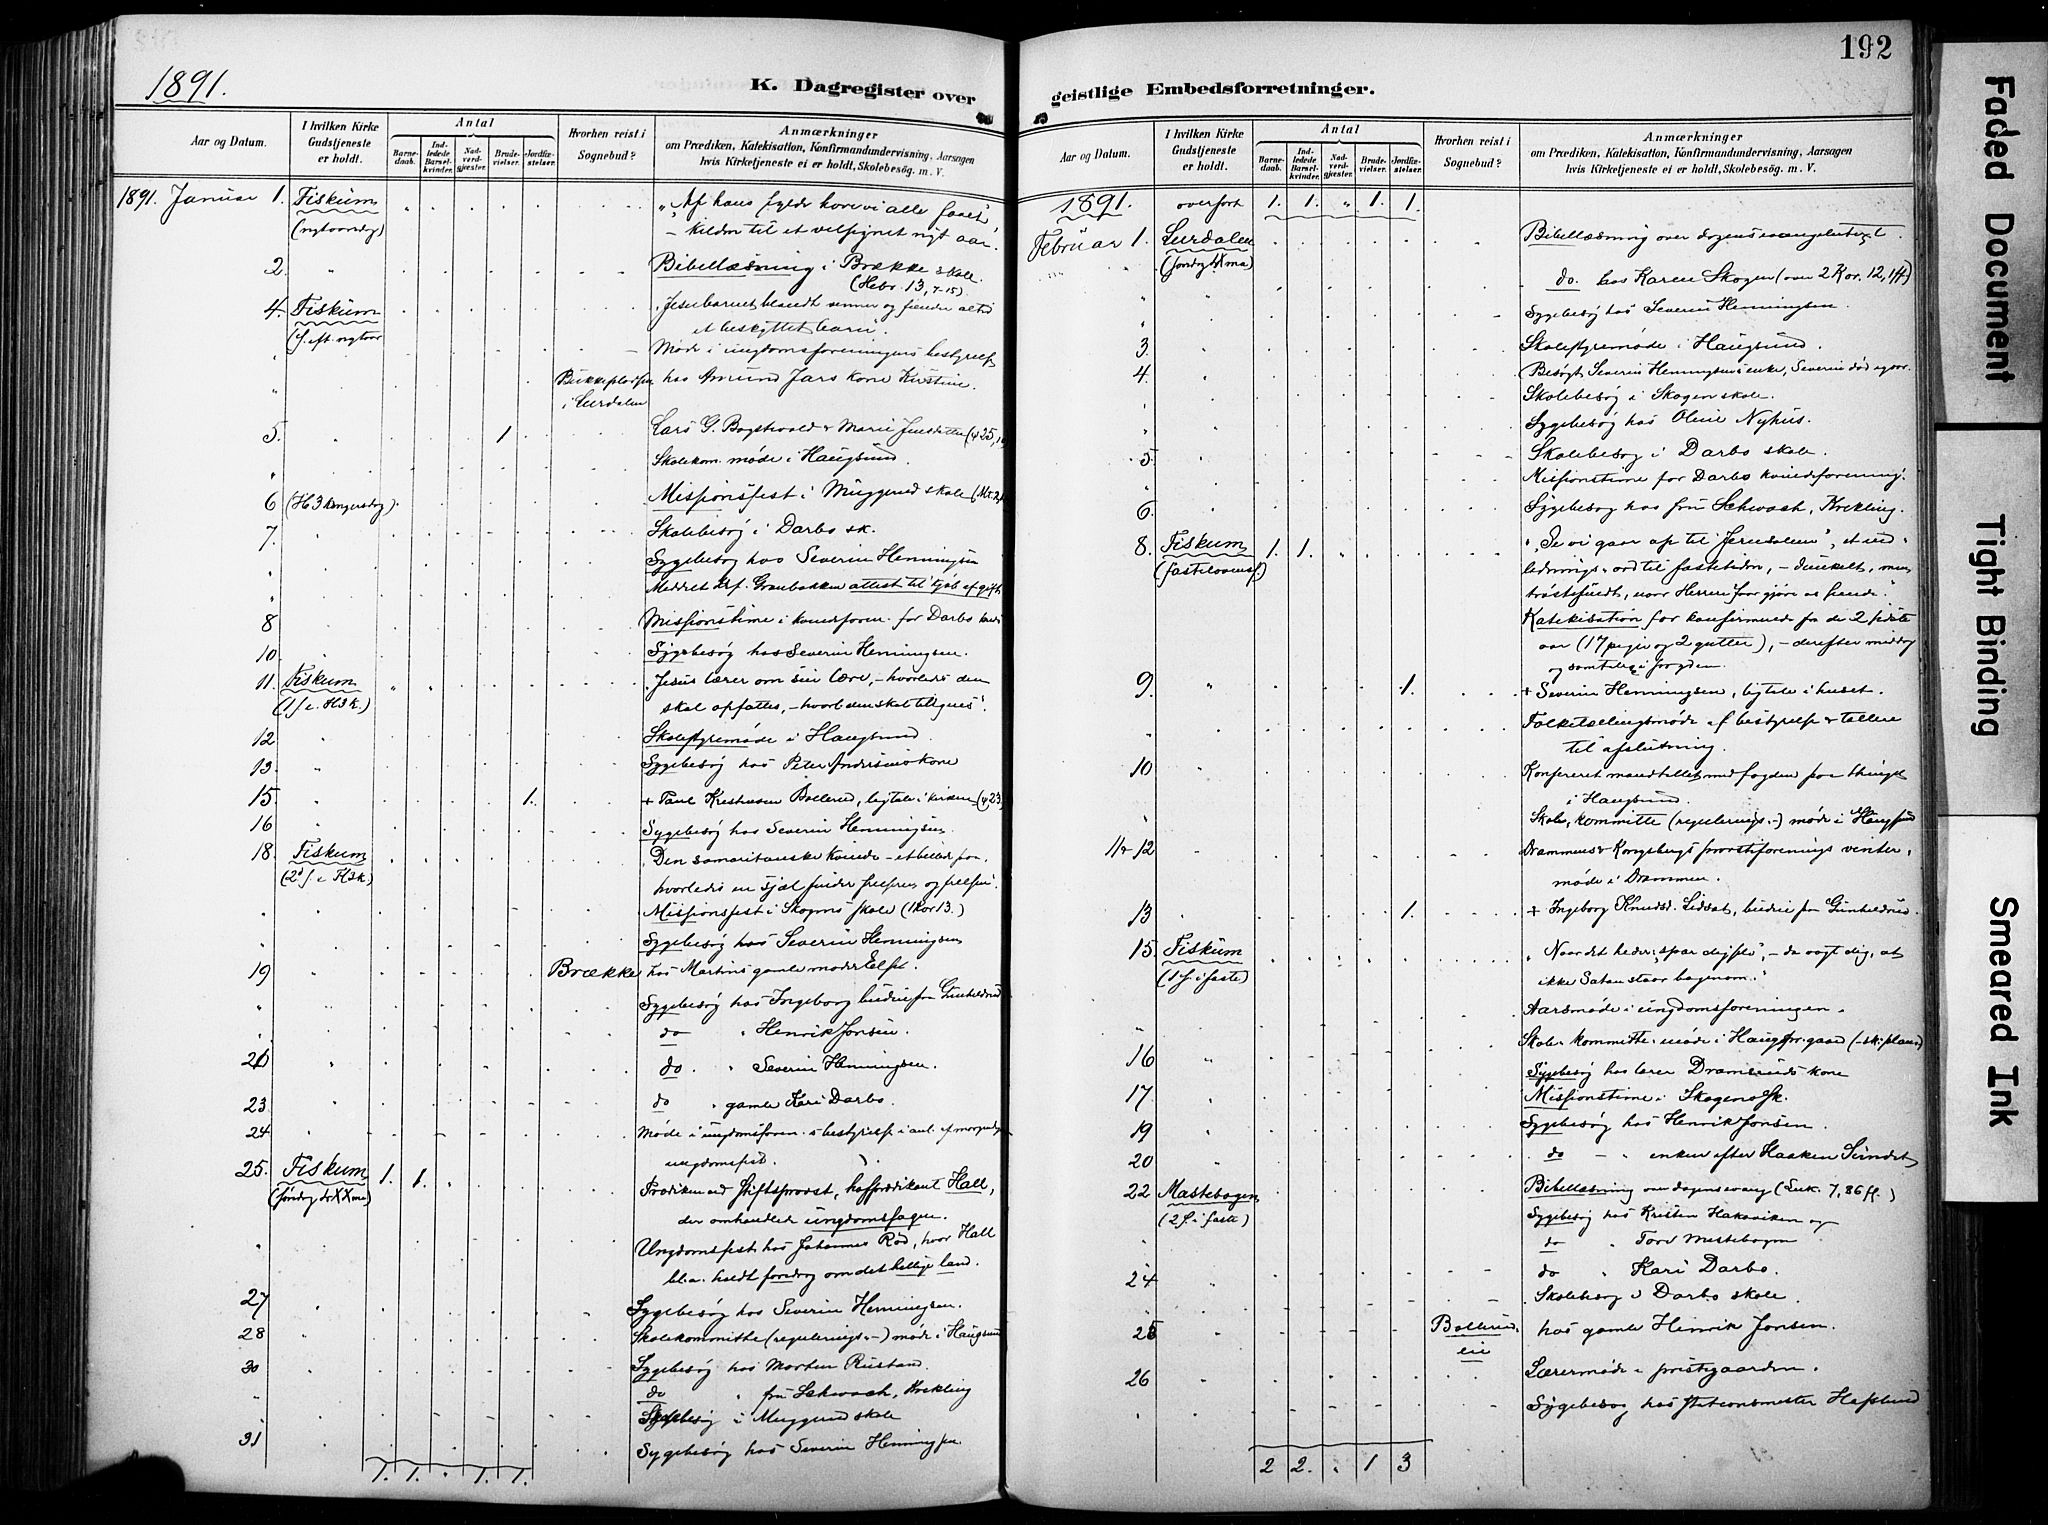 192
1891.
K. Dagregister over
geistlige Embedsforretninger.
Aar og Datum.
I hvilken Kirke Gudstjeneste er holdt.
Antal
Barnedaab.
Indledede Barselkvinder.
Nadverdgjæster.
Brudevielser.
Jordfæstelser.
Hvorhen reist i Sognebud?
Anmærkninger
om Prædiken, Katekisation, Konfirmandundervisning, Aarsagen
hvis Kirketjeneste ei er holdt, Skolebesøg. m. V.
1891. Januar 1. Fiskum "Af hans fylde have vi alle faaet"
(nytaarsdag) - kilden til et velsignet nyt aar.
2. " Bibellæsning i Brække skole.
(Hebr. 13, 7-15)
4. Fiskum "Jesusbarnet blandt venner og fiender altid
(S. eft. nytaar et beskyttet barn".
" Møde i ungdomsforeningens bestyrelse
" Bukkepladsen hos Amund Jars kone Kirstine.
i Lurdalen
5. " 1 Lars G. Bagstevold & Marie Jensdatter
" Skolekom. møde i Haugsund.
6 (H 3 kongersdag). Missionsfest i Muggerud skole
7. " Skolebesøg i Darbo sk.
" Sygebesøg hos Severin Henningsen
" Meddelt attest til kjøb af gift
8 " Missionstime i kvindeforen. for Darbo
10. " Sygebesøg hos Severin Henningsen.
11. Fiskum " " "Jesus lærer om sin lære, - hvorledes den
(1 s. e. H3k.) skal opfattes, - hvorl. den skal tilegnes".
12 " Skolestyremøde i Haugsund.
13. " Sygebesøg hos Peter Andersens kone
15. " 1. + Paul Kristiansen Bollerud, ligtale i kirken
16 " Sygebesøg hos Severin Henningsen
18. Fiskum "Den samaritanske kvinde - et billed paa,
(2d s. e H3k.) hvorledes en sjæl finder frelseren og frelsen".
" Missionsfest i Skogens skole (1 Kor 13.)
" Sygebesøg hos Severin Henningsen
19 " Brække hos Martins gamle moder Else.
" Sygebesøg hos Ingeborg budeie fra Gunhildrud
" do " Henrik Jonsen.
21 " do. " Severin Henningsen.
23 " do " gamle Kari Darbo.
24 " Møde i ungdomsforen.s bestyrelse i anl. af morgendagens
ungdomsfest.
25. Fiskum 1. 1. Prædiken ved Stiftsprovst, hofprædikant Hall,
(søndag dr XXma) der omhandlede ungdomssagen.
" Ungdomsfest hos Johannes Rød, hvor Hall
bl.a. holdt foredrag om det hellige land.
27 " Sygebesøg hos Severin Henningsen.
28 " Skolekommitte (regulerings-) møde i Haugsund
30 " Sygebesøg hos Morten Rustand.
" do " fru Schwach, Krekling
" Skolebesøg i Muggerud skole
31 " Sygebesøg hos Severin Henningsen
1. 1. " 1. 1.
Aar og Datum.
I hvilken Kirke Gudstjeneste er holdt.
Antal
Barnedaab.
Indledede Barselkvinder.
Nadverdgjæster.
Brudevielser.
Jordfæstelser.
Hvorhen reist i Sognebud?
Anmærkninger
om Prædiken, Katekisation, Konfirmandundervisning, Aarsagen
hvis Kirketjeneste ei er holdt, Skolebesøg. m. V.
1891. overført 1. 1. " 1. 1.
Februar 1. Lurdalen Bibellæsning over dagens evangelietext.
" (søndag dr Xma) do. hos Karen Skogen (over 2 Kor. 12, 1ff)
" Sygebesøg hos Severin Henningsen.
3. Skolestyremøde i Haugsund.
4. " Besøgt Severin Henningsens enke, Severin død igaar.
" Skolebesøg i Skogen skole.
" Sygebesøg hos Oline Nyhus.
5. " Skolebesøg i Darbo skole.
" Missionstime for Darbo kvindeforening.
6. " Sygebesøg hos fru Schwach, Krekling.
8. Fiskum 1. 1. " "Se vi gaar op til Jerusalem", et ind-
(fastelavenss.) lednings-ord til fastetiden, - dunkelt, men
trøstefuldt, naar Herren faar gjøre os seende."
Katekisation for konfirmerede fra de 2 sidste
aar (17 piger og 2 gutter), - derefter middag
og samtale i prgden.
9. " 1. + Severin Henningsen, ligtale i huset.
" Folketællingsmøde af bestyrelse & tællere
til afslutning.
10 " Konfereret mandtallet med fogden paa thinget
i Haugsund.
" Skole-kommitte (regulerings-) møde i Haugsund
11 & 12 " Drammens & Kongsbergs provstiforenings vinter-
møde i Drammen.
13 " 1. + Ingeborg Knudsd. Lidsæt, budeie fra Gunhildrud.
15. Fiskum "Naar det heder: spar dig selv", - da vogt dig, at
(1 s. i faste) ikke Satan staar bagenom."
Aarsmøde i ungdomsforeningen.
16 " Skole-kommitte-møde i Haugs pr.gaard (-sk.planen)
" Sygebesøg hos lærer Dramsruds kone
17. " Missionstime i Skogens sk.
19 " Sygebesøg hos Henrik Jonsen.
20 " do - " enken efter Haaken Sundet
22 Mastebogen Bibellæsning over dagens evang (Luk. 7, 36ff.)
(2 s. i faste) Sygebesøg hos Kristen Hakaviken og
" do " Tove Mastebogen
24 " do " Kari Darbo.
" Skolebesøg i Darbo skole.
25 " Bollerud- hos gamle Henrik Jonsen.
eie
26 " Lærermøde i prestegaarden.
" Sygebesøg hos stationsmester Hafslund
2 2. " 1 3
Faded Document
Tight Binding
Smeared Ink